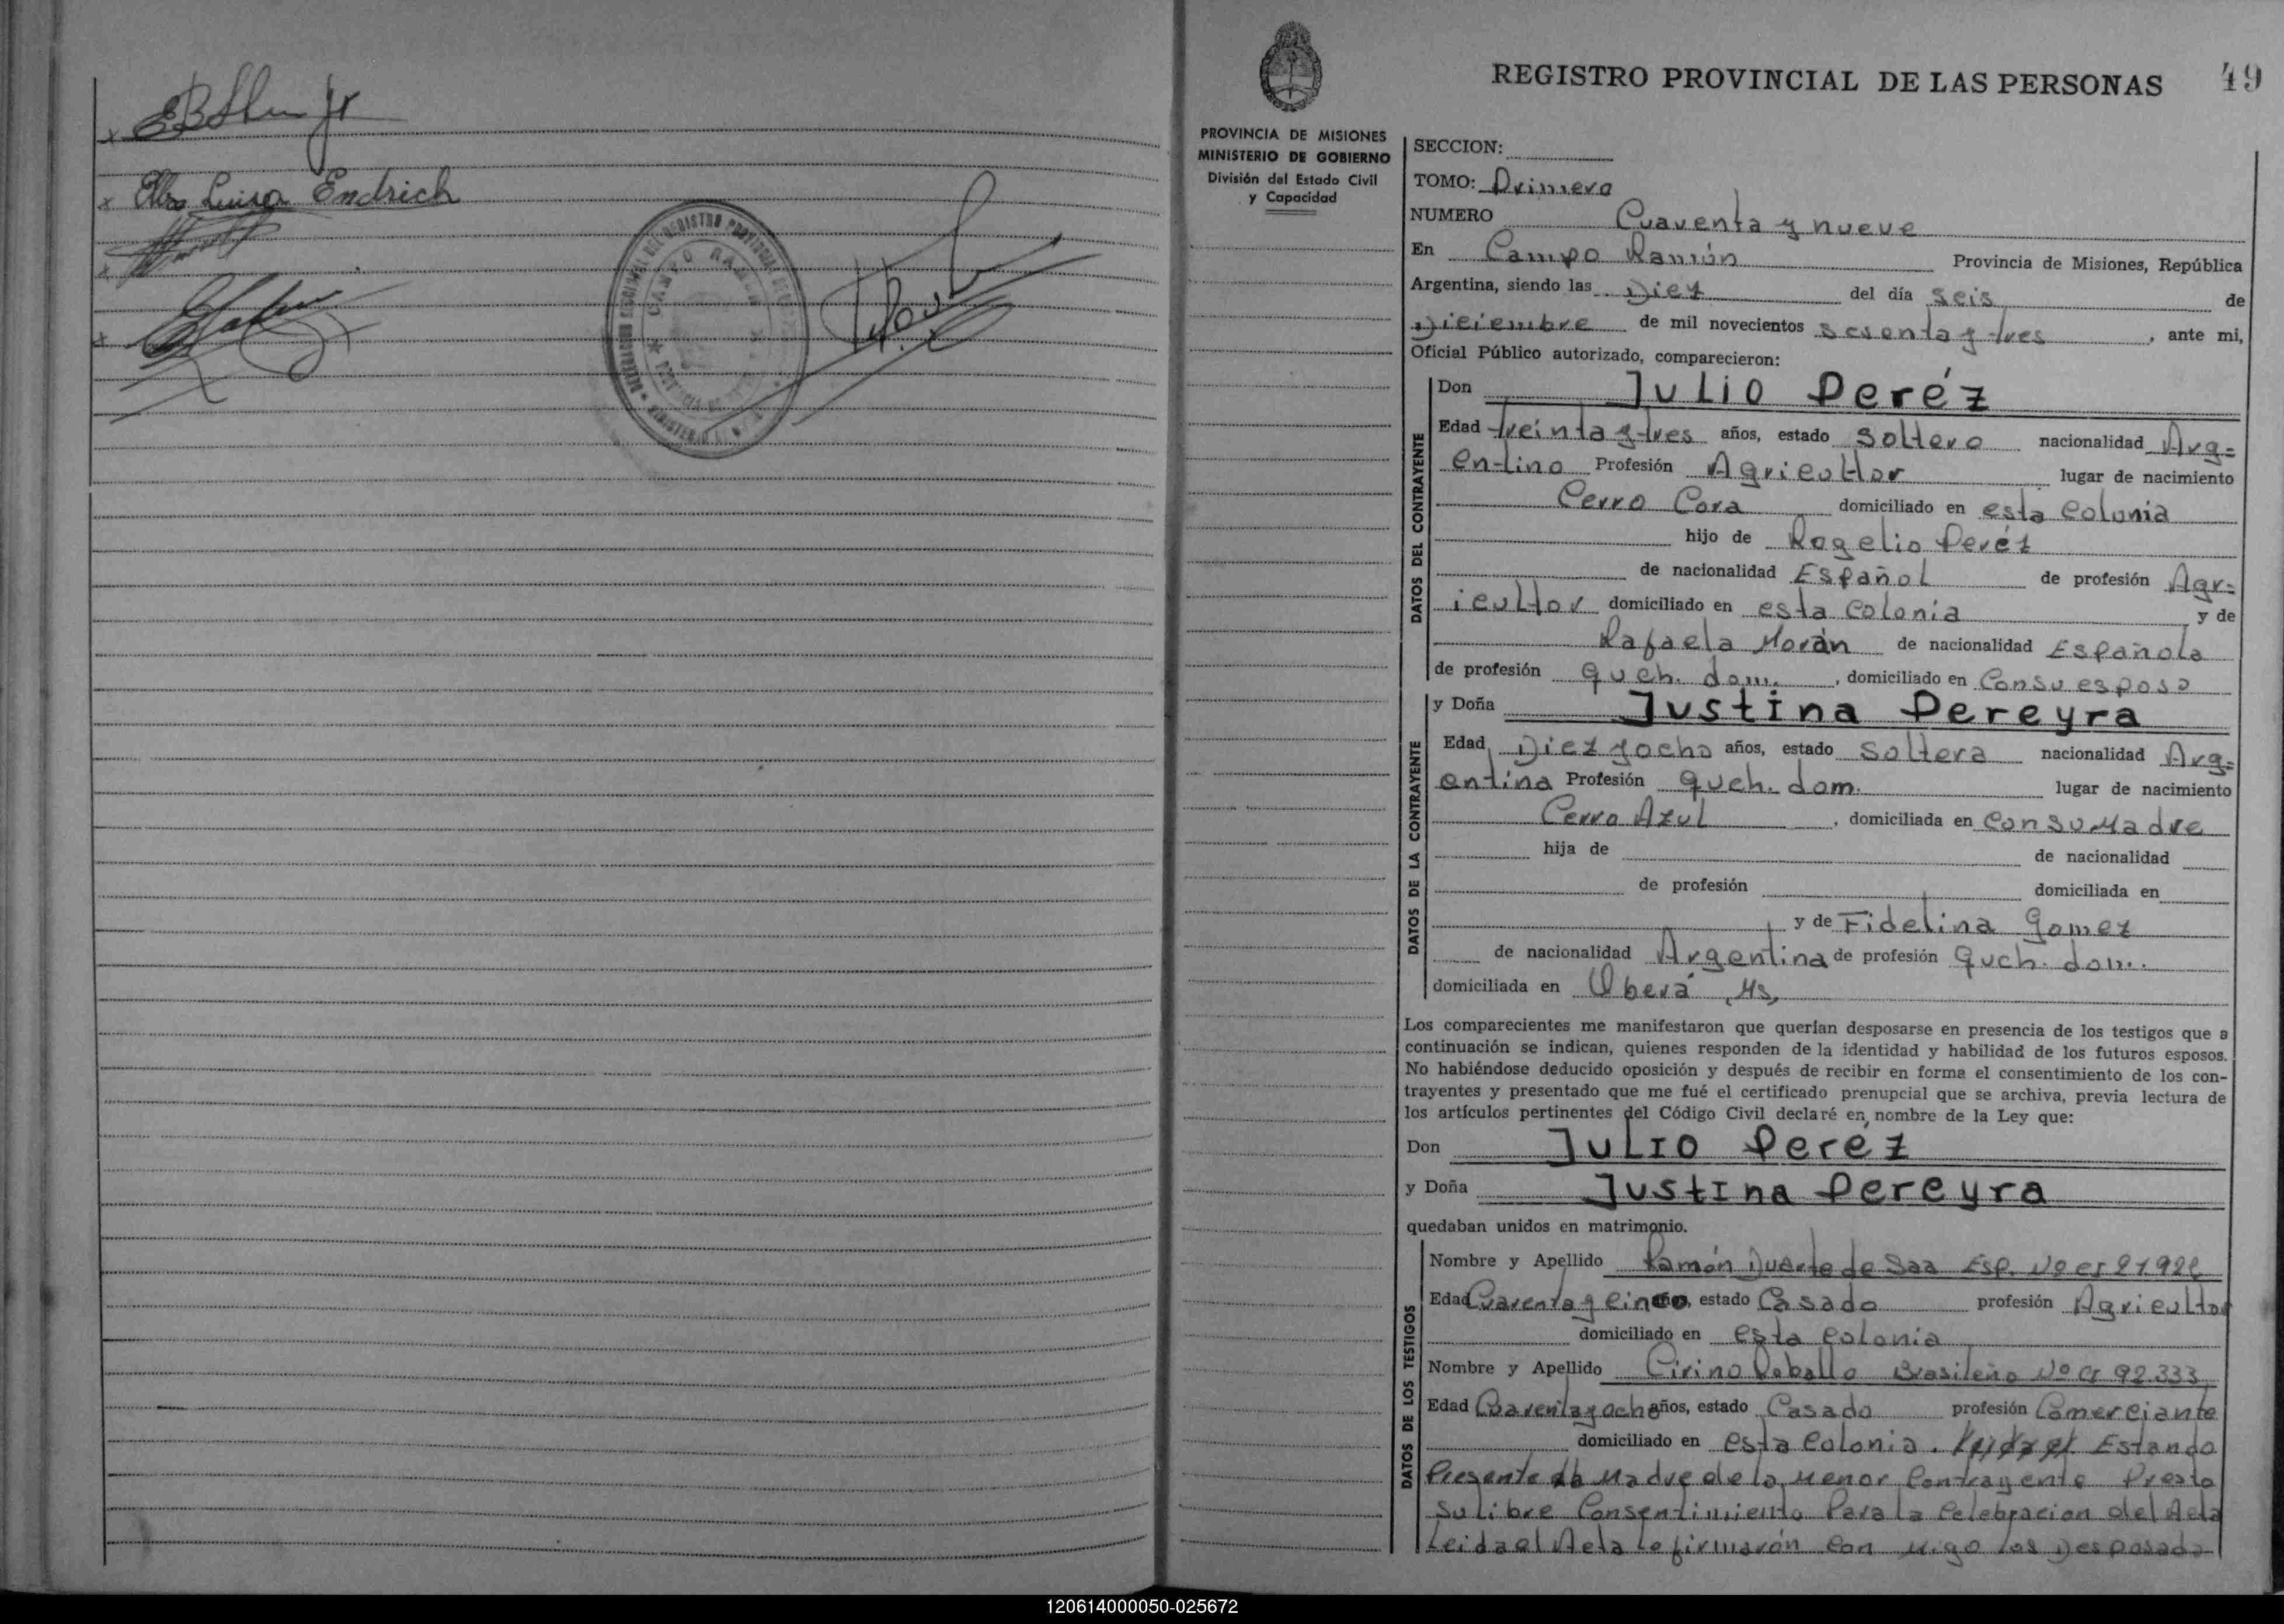 Elsa Luisa Endrich
CAMPO RAMON
49
REGISTRO PROVINCIAL DE LAS PERSONAS
PROVINCIA DE MISIONES
MINISTERIO DE GOBIERNO
División del Estado Civil
y Capacidad
SECCION:
TOMO: Primero
NUMERO Cuarenta y nueve
En Campo Ramón Provincia de Misiones, República
Argentina, siendo las Diez del día seis de
Diciembre de mil novecientos sesenta y tres, ante mi,
Oficial Público autorizado, comparecieron:
DATOS DEL CONTRAYENTE
Don Julio Peréz
Edad treinta y tres años, estado soltero nacionalidad Arg=
entino Profesión Agricultor lugar de nacimiento
Cerro Cora domiciliado en esta Colonia
hijo de Rogelio Peréz
de nacionalidad Español de profesión Agr=
icultor domiciliado en esta Colonia y de
Rafaela Morán de nacionalidad Española
de profesión queh. dom., domiciliado en Con su esposo
DATOS DE LA CONTRAYENTE
y Doña Justina Pereyra
Edad Diez y ocho años, estado soltera nacionalidad Arg=
entina Profesión queh. dom. lugar de nacimiento
Cerro Azul, domiciliada en Con su Madre
hija de de nacionalidad
de profesión domiciliada en
y de Fidelina Gomez
de nacionalidad Argentina de profesión queh. dom.
domiciliada en Oberá, Ms,
Los comparecientes me manifestaron que querían desposarse en presencia de los testigos que a
continuación se indican, quienes responden de la identidad y habilidad de los futuros esposos.
No habiéndose deducido oposición y después de recibir en forma el consentimiento de los con-
trayentes y presentado que me fué el certificado prenupcial que se archiva, previa lectura de
los artículos pertinentes del Código Civil declaré en nombre de la Ley que:
Don Julio Peréz
y Doña Justina Pereyra
quedaban unidos en matrimonio.
DATOS DE LOS TESTIGOS
Nombre y Apellido Ramón Duarte de Saa Esp. Nº
Edad Cuarenta y cinco, estado Casado profesión Agricultor
domiciliado en esta Colonia
Nombre y Apellido Cirino Brasileño Nº CI 92.333
Edad Cuarenta y ocho años, estado Casado profesión Comerciante
domiciliado en esta Colonia. Estando
Presente la Madre de la Menor Contrayente Presto
su libre Consentimiento Para la Celebracion del Acta
Leida el Acta la firmarón Con migo los Desposado
120614000050-025672